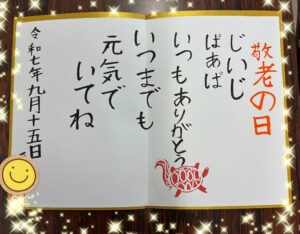 敬老の日
じいじ
ばあば
いつもありがとう
いつまでも
元気で
いてね
令和七年九月十五日